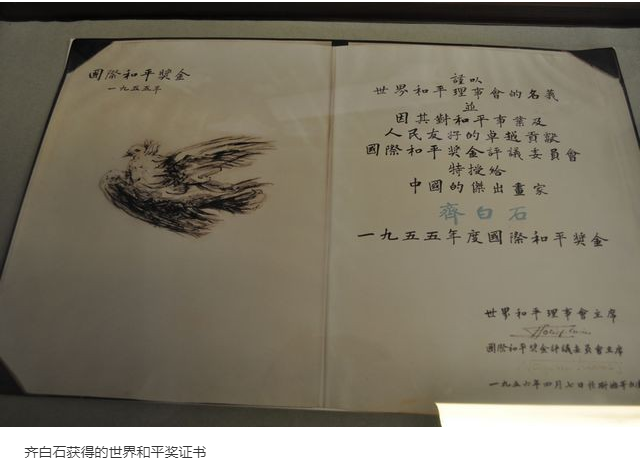 國際和平獎金
一九五五年
謹以
世界和平理事會的名義
並
因其對和平事業及
人民友好的卓越貢獻
國際和平獎金評議委員會
特授給
中國的傑出畫家
齊白石
一九五五年度國際和平獎金
世界和平理事會主席
國際和平獎金評議委員會主席
一九五六年四月七日於斯德哥尔摩
齐白石获得的世界和平奖证书